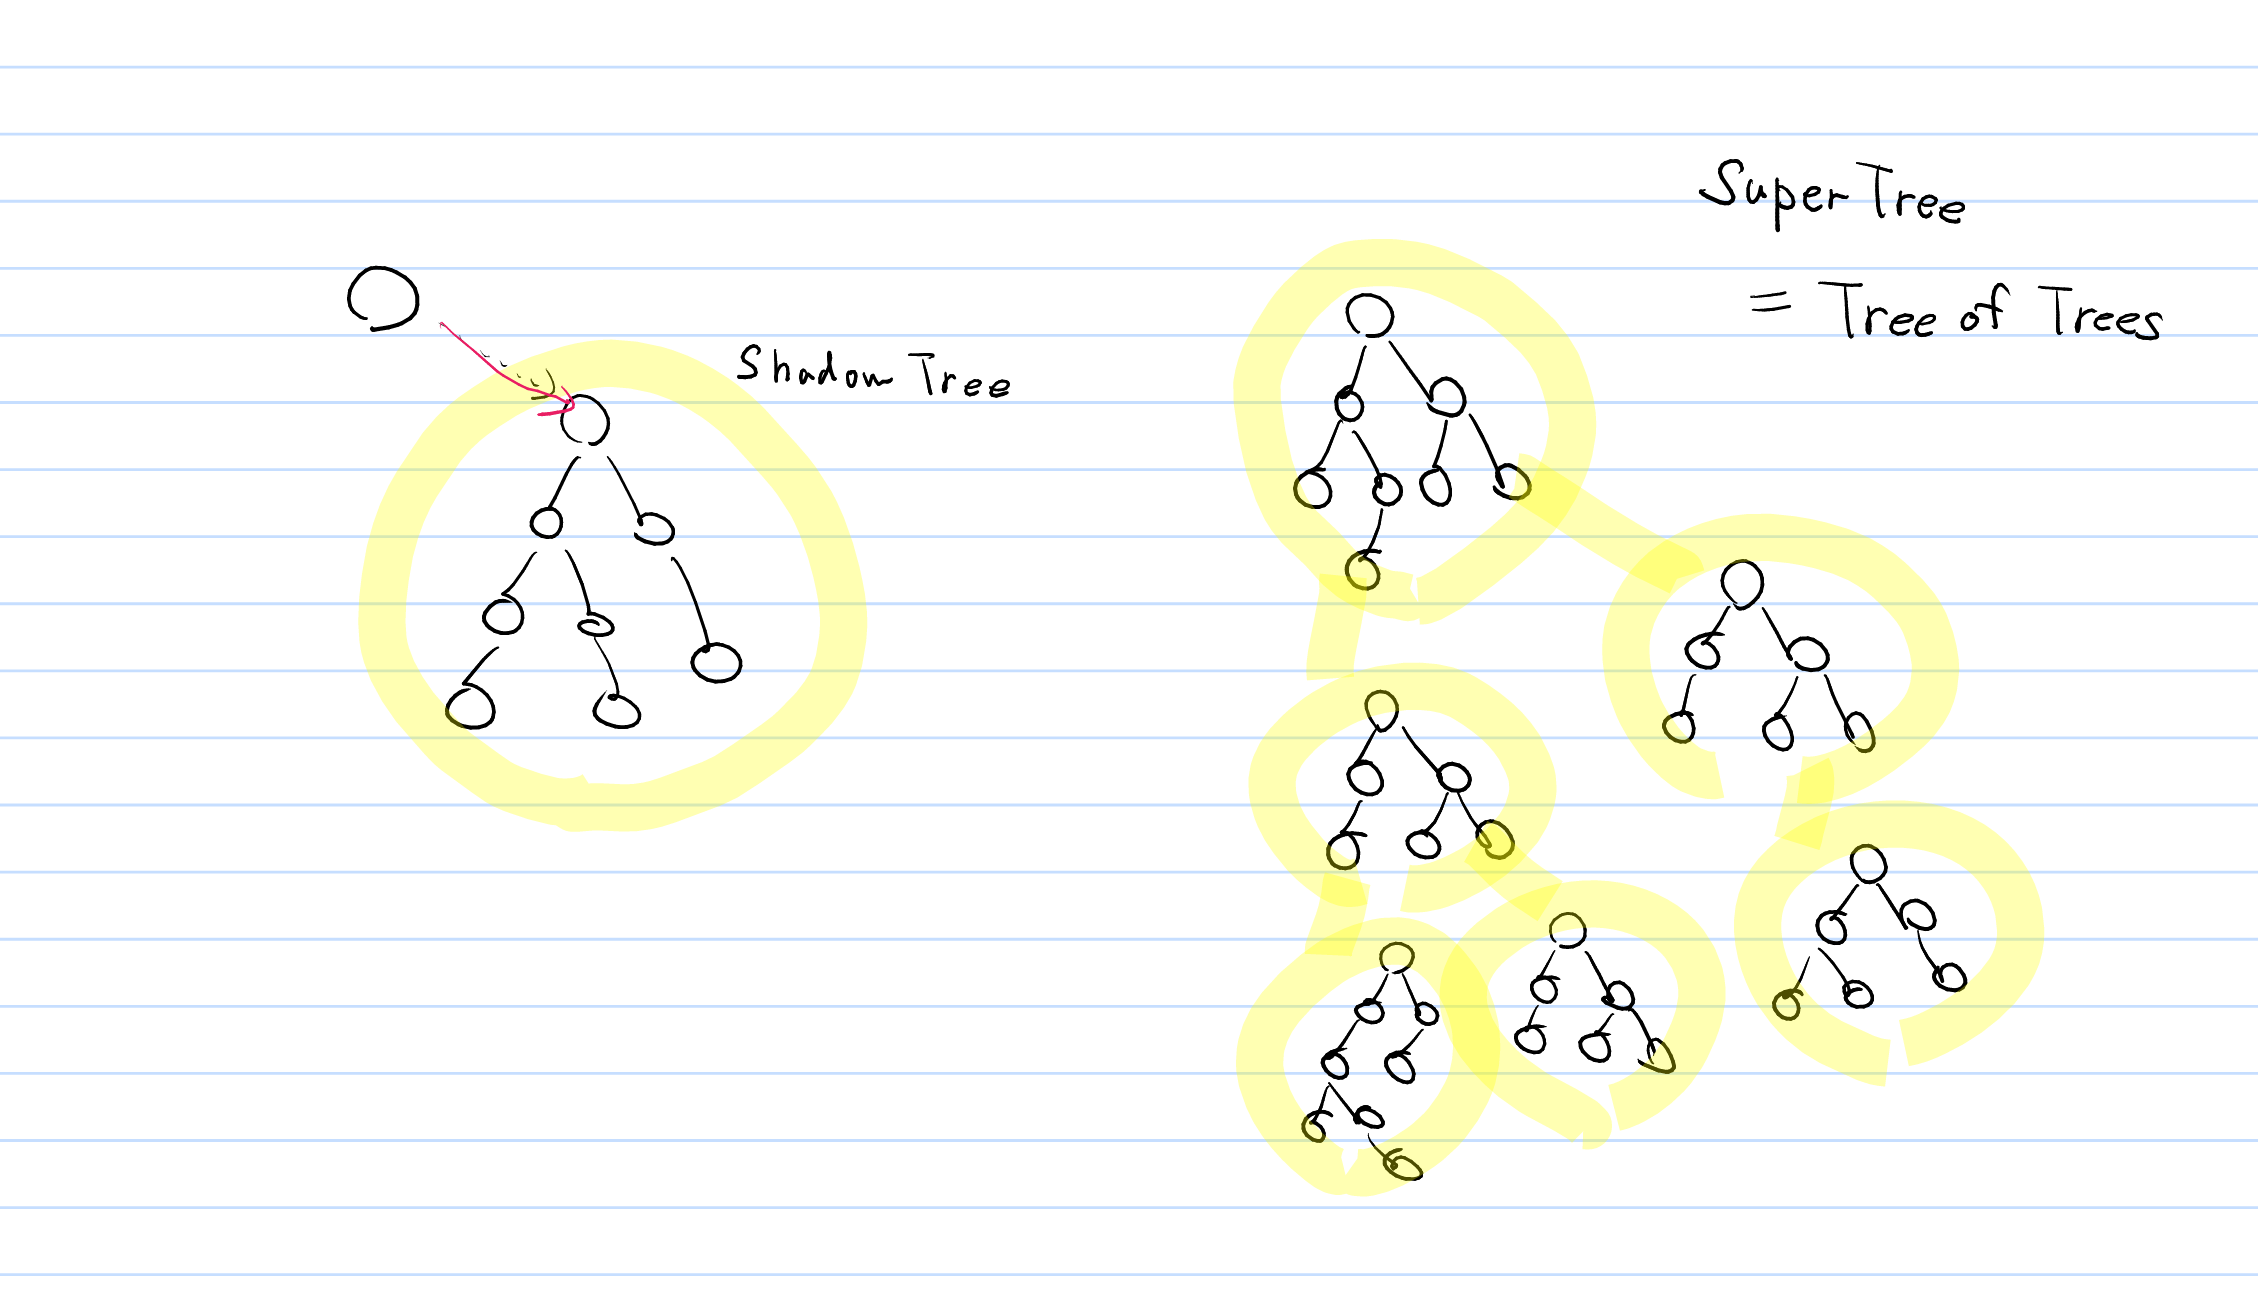 Shadow Tree
Super Tree
= Tree of Trees